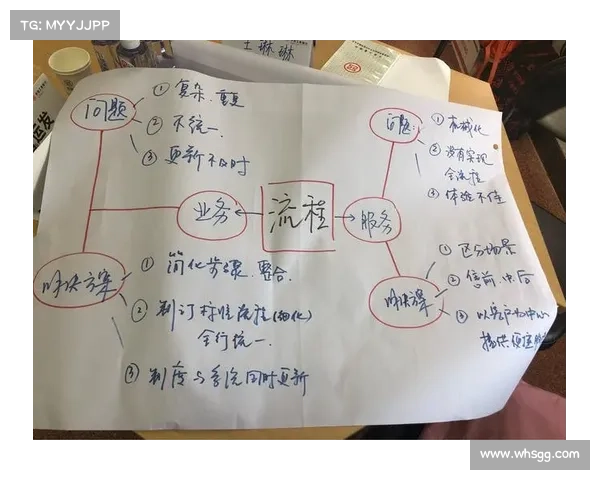 TG: MYYJJPP
王琳琳
问题
① 复杂、重复
② 不统一
③ 更新不及时
业务
流程
服务
问题:
① 机械化
② 没有实现
全流程
③ 体验不佳
解决方案
① 简化步骤、整合
② 制订标准流程(细化)
全行统一
③ 制度与系统同时更新
解决方案
① 区分场景
② 售前.中.后
③ 以客户为中心
提供便连
www.whsgg.com